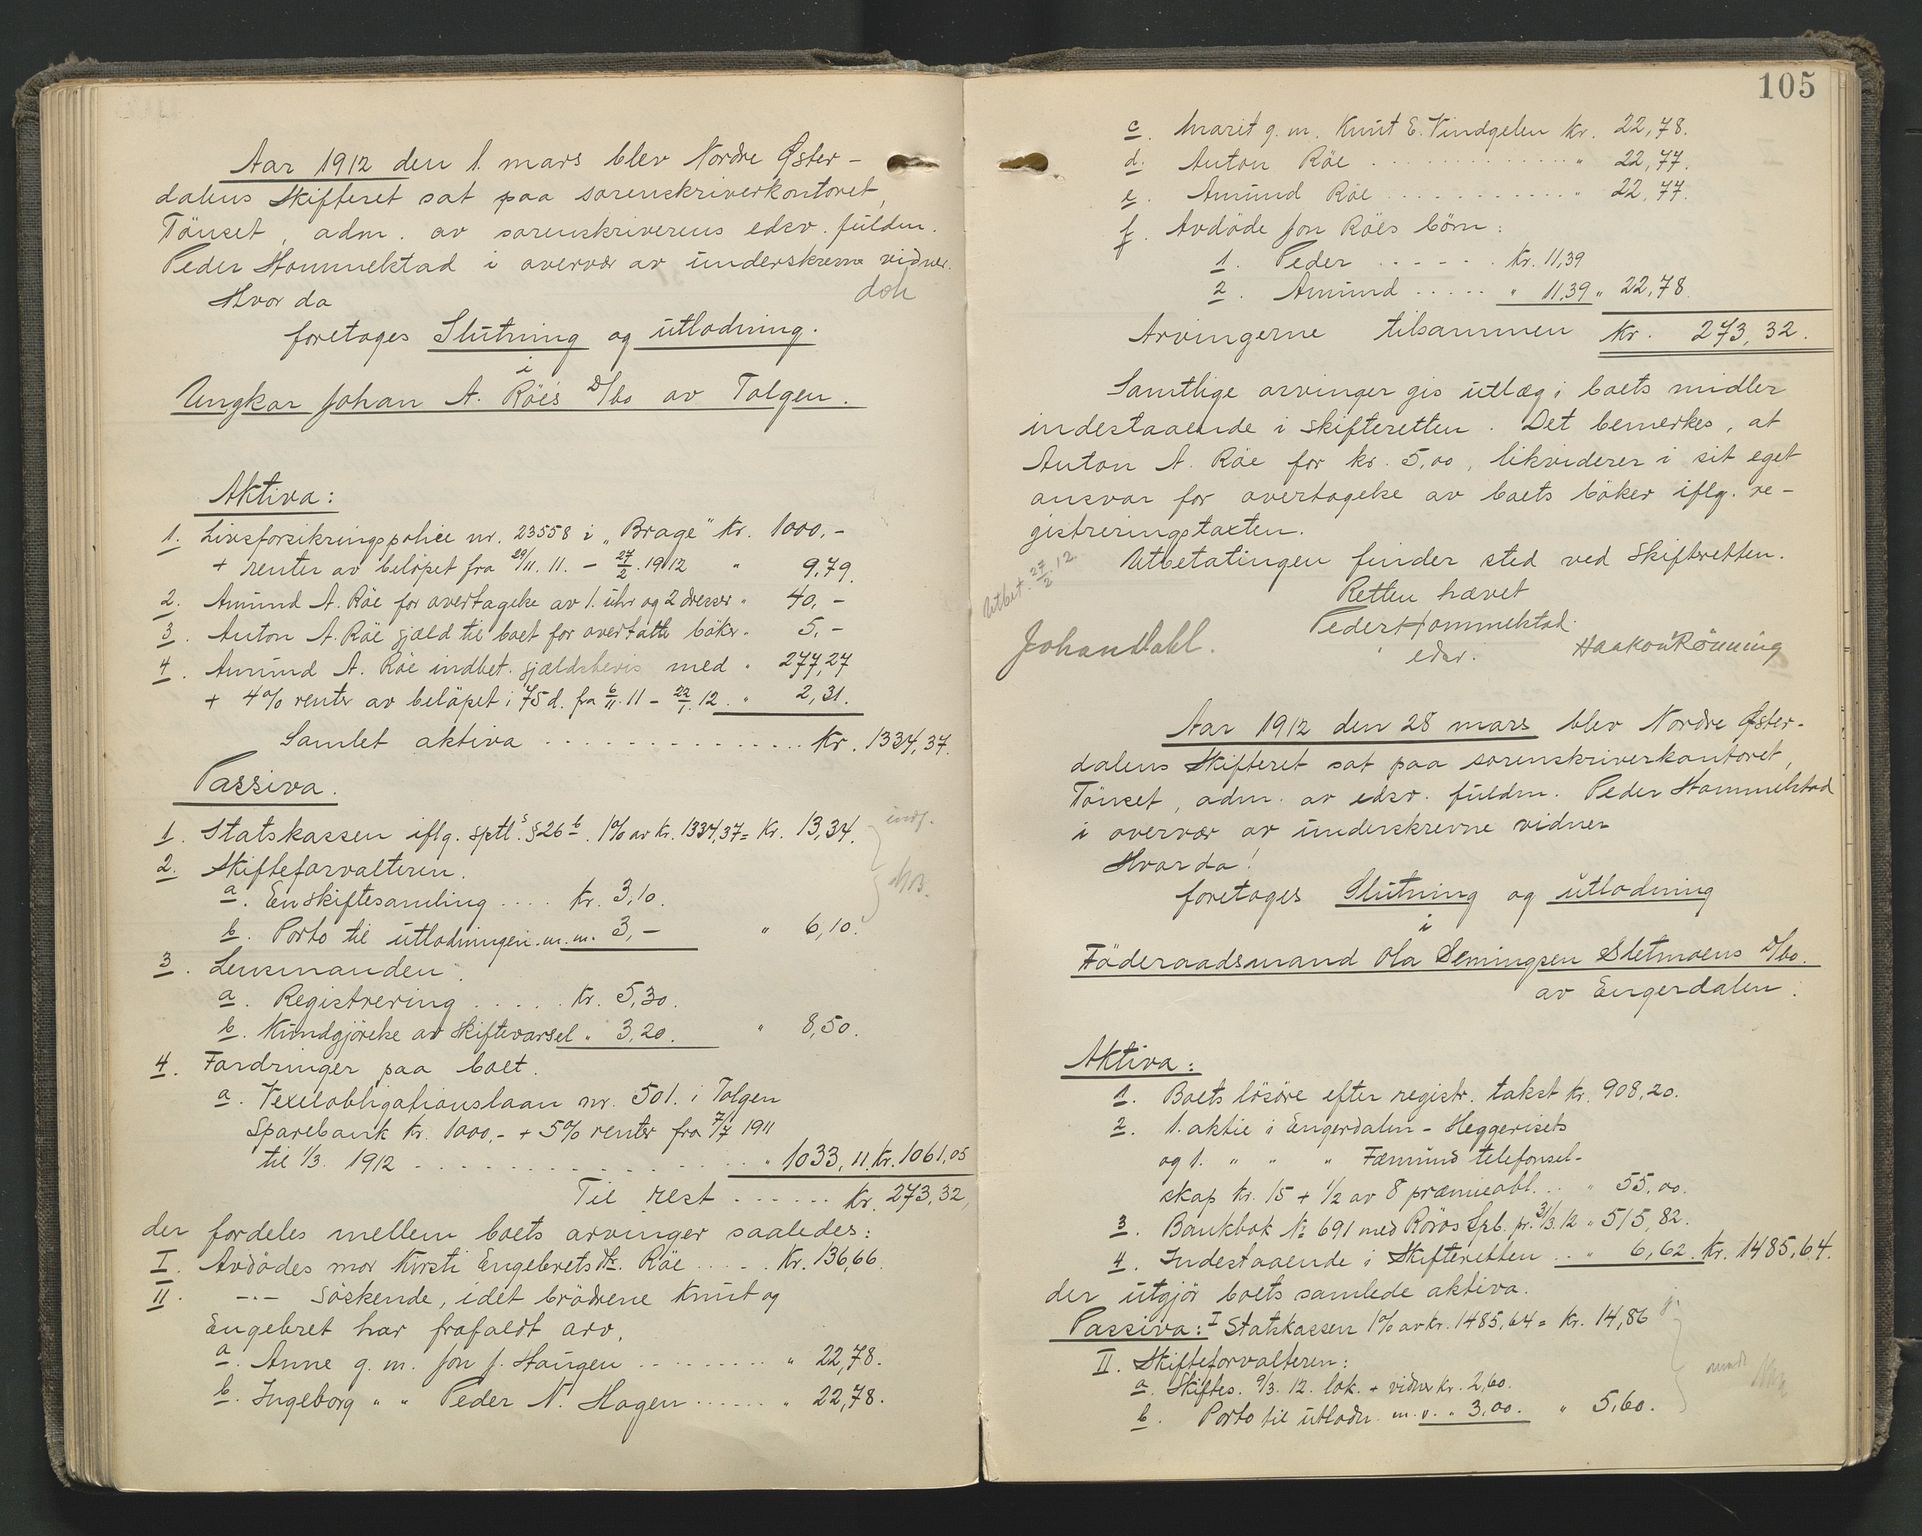 Aar 1912 den 1. mars blev Nordre Øster-
dalens Skifteret sat paa sorenskriverkontoret,
Tönset, adm. av sorenskriverens edsv. fuldm.
Peder Hommelstad i overvær av underskrevne vidner.
Hvor da
foretoges Slutning og utlodning.
i
Ungkar Johan A. Röes D/bo av Tolgen.
Aktiva:
1. Livsforsikringspolice nr. 23558 i „Brage" Kr. 1000,-
+ renter av beløpet fra 29/11. 11. - 27/2. 1912 " 9,79.
2. Amund A. Röe for overtagelse av 1. uhr og 2 dresser " 40,-
3. Anton A. Röe gjæld til boet for overtatte böker " 5,-
4. Amund A. Röe indbet. gjældsbevis med " 277,27
+ 4% renter av belöpet i 75 d. fra 6/11. 11 - 22/1. 12 " 2,31.
Samlet aktiva . . . . . . Kr. 1334,37.
Passiva.
1. Statskassen iflg. sptl.s § 26 b. 1% av kr. 1334,37 = Kr. 13,34.
2. Skifteforvalteren.
a. En skiftesamling . . . . Kr. 3,10.
b. Porto til utlodningen m. m. 3,- " 6,10.
3. Lensmanden.
a. Registrering . . . . . Kr. 5,30.
b. Kundgjörelse av Skiftevarsel " 3,20. " 8,50.
4. Fordringer paa boet.
a. Vexelobligationslaan nr. 501. i Tolgen
Sparebank Kr. 1000,- + 5% renter fra 7/7 1911
til 1/3. 1912 . . . . . . " 1033,11. Kr. 1061,05
Til rest . . . . . . Kr. 273,32,
der fordeles mellem boets arvinger saaledes:
I. Avdödes mor Kirsti Engebretsdtr. Röe . . . . . Kr. 136,66.
II. -"- söskende, idet brödrene Knut og
Engebret har frafaldt arv,
a. Anne g. m. Jon J. Haugen . . . . . . " 22,78.
b. Ingeborg " " Peder N. Hagen . . . . . . " 22,78.
105
c. Marit g. m. Knut E. Vindgelen Kr. 22,78.
d. Anton Röe . . . . . . " 22,77.
e. Amund Röe . . . . . . " 22,77.
f. Avdöde Jon Röes börn:
1. Peder . . . . . Kr. 11,39
2. Amund . . . . . " 11,39 " 22,78.
Arvingerne tilsammen Kr. 273,32.
Samtlige arvinger gis utlæg i boets midler
indestaaende i skifteretten. Det bemerkes, at
Anton A. Röe for kr. 5,00, likviderer i sit eget
ansvar for overtagelse av boets böker iflg. re-
gistreringstaxten.
Utbetalingen finder sted ved Skifteretten.
Utbet. 27/2. 12.
Retten hævet
Peder Hommelstad.
edsv.
Johan Dahl.
Haakon Rönning
Aar 1912 den 28 mars blev Nordre Øster-
dalens Skifteret sat paa sorenskriverkontoret,
Tönset, adm. av edsv. fuldm. Peder Hommelstad
i overvær av underskrevne vidner
Hvor da!
foretoges Slutning og utlodning
i
Föderaadsmand Ola Hemingsen Sletmoens D/bo.
av Engerdalen.
Aktiva:
1. Boets lösöre efter registr. takst Kr. 908,20.
2. 1. aktie i Engerdalen - Heggerisets
og 1. " " " Fæmund telefonsel-
skap Kr. 15 + 1/2 av 8 præmieobl. . . " 55,00.
3. Bankbok No 691 med Röros Spb. pr. 31/3. 12 " 515,82.
4. Indestaaende i Skifteretten . . " 6,62. Kr. 1485,64.
der utgjör boets samlede aktiva.
Passiva: I Statskassen 1% av kr. 1485,64 = Kr. 14,86
II. Skifteforvalteren:
a. Skiftes. 9/3. 12. lok. + vidner kr. 2,60.
b. Porto til utlodn. m. v. " 3,00. " 5,60.